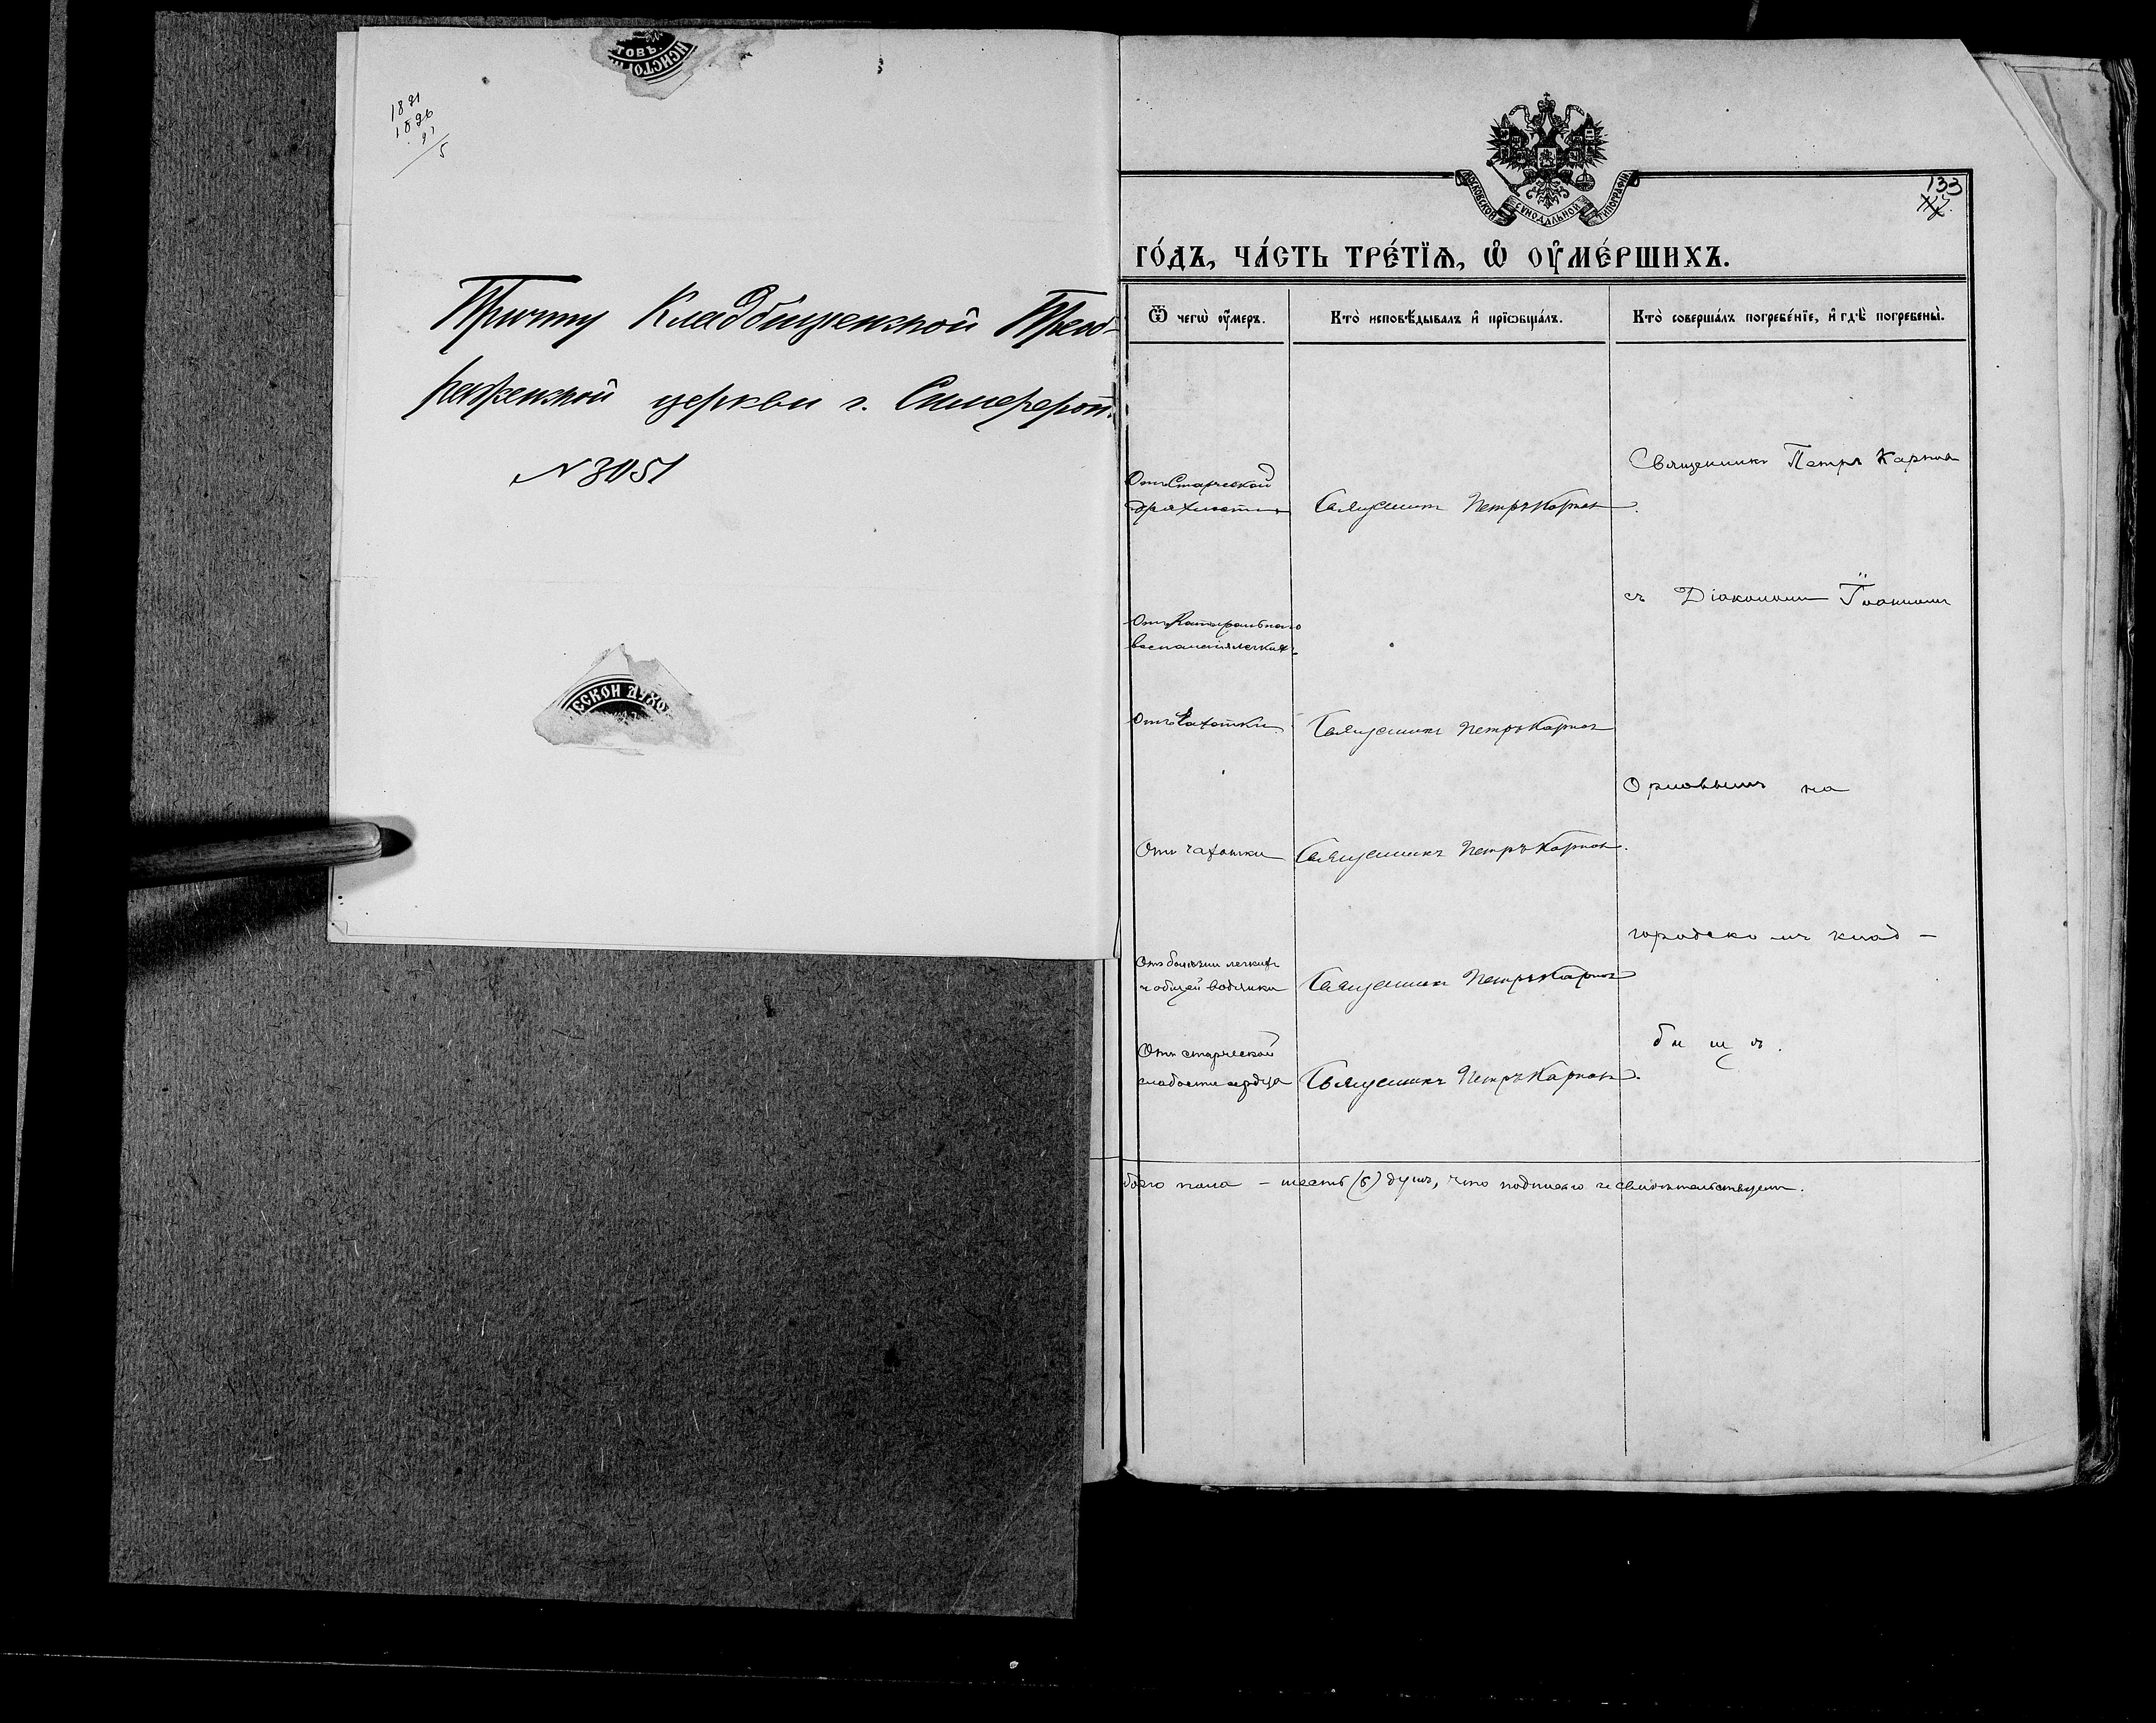 1891
1896
91/5
ТОВЪ.
НСИСТОР
Причту Кладбищенской Преоб-
раженской церкви г. Симфероп.
N 3051
ЕСКОЙ ДУХО
МОСКОВСКОЙ СѴНОДАЛЬНОЙ ТИПОГРАФІИ
133
го́дъ, ча́сть тре́тїѧ, ѡ҆ ᲂу҆ме́ршихъ.
Ѿ чегѡ̀ ᲂу҆́меръ.
Кто̀ и҆сповѣ́дывалъ и҆ прїѡбща́лъ.
Кто̀ соверша́лъ погребе́нїе, и҆ гдѣ̀ погребены̀.
Отъ Старческой
дряхлости
Священникъ Петръ Карпов
Священникъ Петръ Карпов
съ Діакономъ Іоанномъ
Отъ Катарральнаго
воспаленія легкихъ
Отъ Чахотки
Священникъ Петръ Карпов
Орловымъ на
Отъ чахотки
Священникъ Петръ Карпов.
городскомъ клад-
Отъ болѣзни легкихъ
и общей водянки
Священникъ Петръ Карпов
бищѣ.
Отъ старческой
слабости сердца
Священникъ Петръ Карпов.
баго пола - шесть (6) душъ, что подписью и свидѣтельствуемъ.